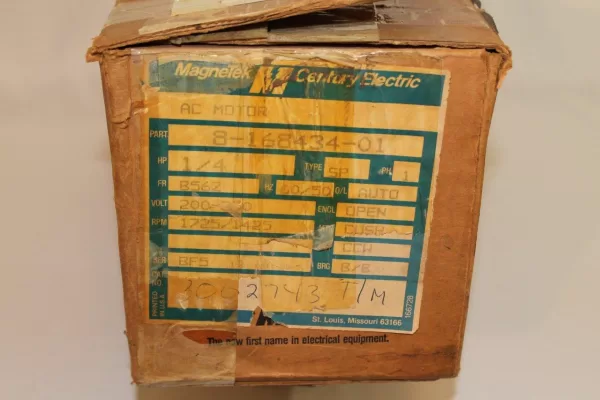 MagneTek Century Electric
AC MOTOR
PART 8-168434-01
HP 1/4 TYPE SP PH 1
FR B56Z HZ 60/50 O/L AUTO
VOLT ENCL OPEN
RPM 1725/1425 CUSH
CCW
BF5 BRG B/B
2002743 T/M
PRINTED IN U.S.A.
166728
St. Louis, Missouri 63166
The new first name in electrical equipment.